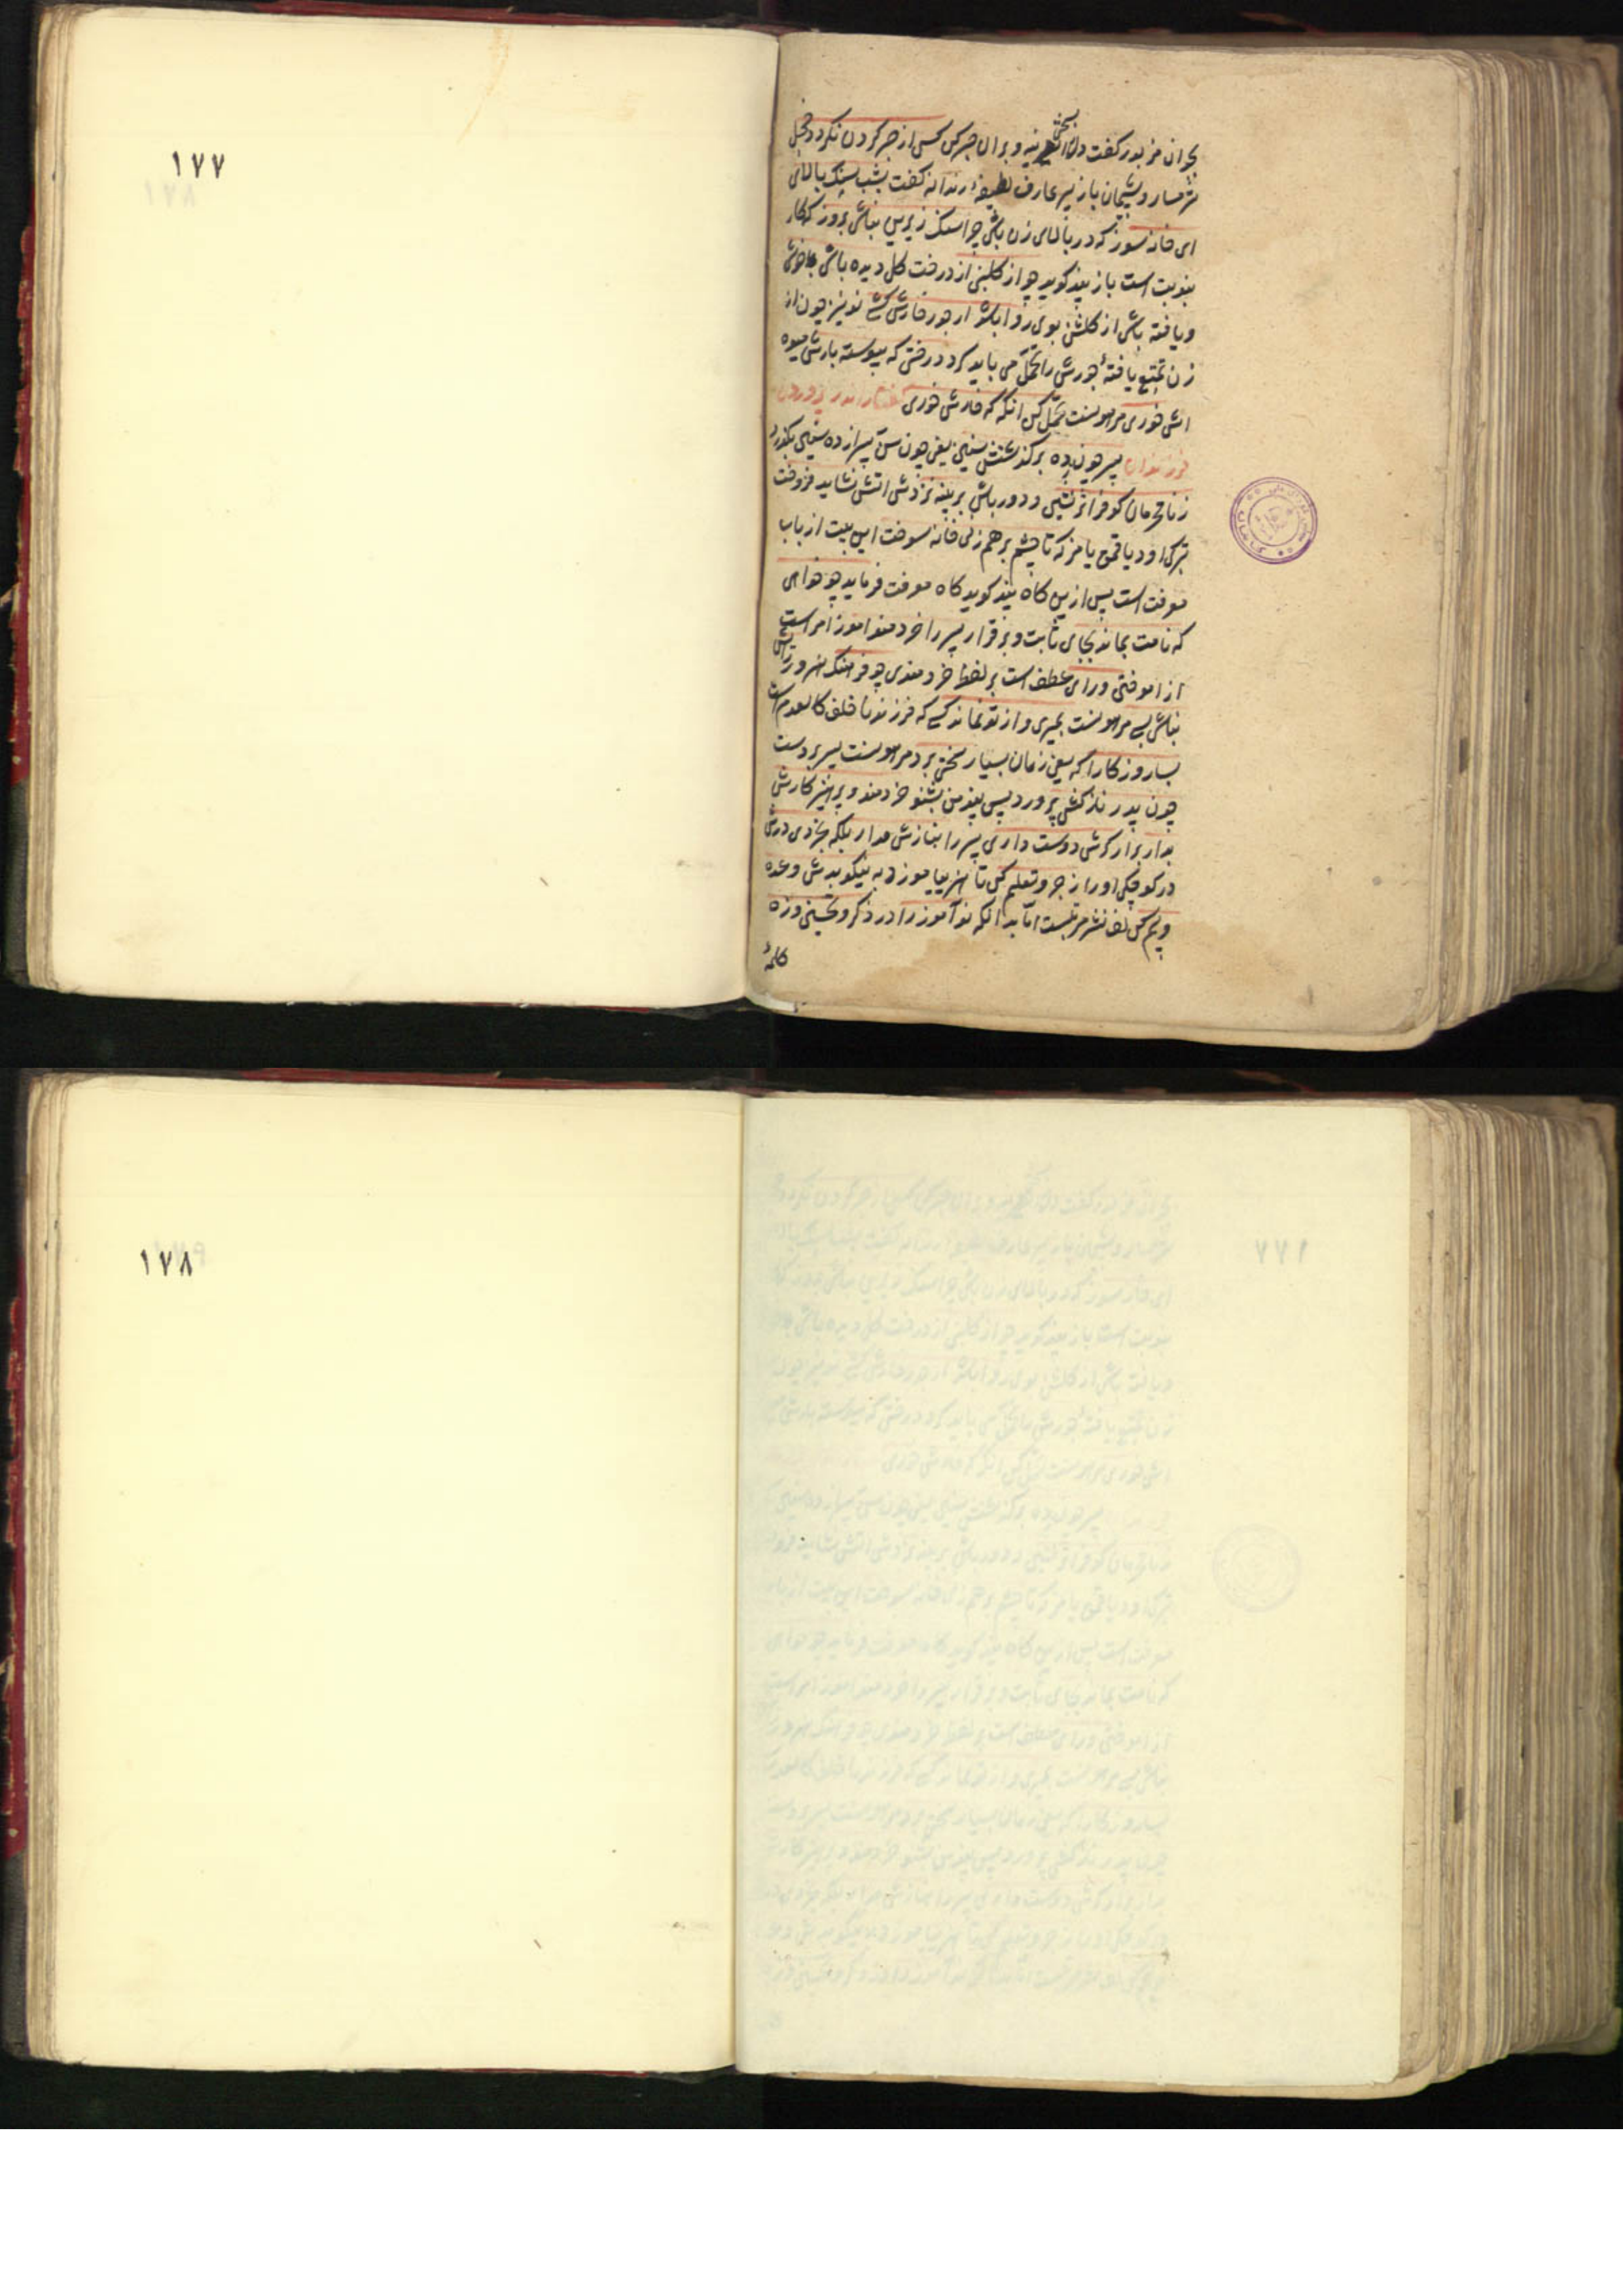 ۱۷۷
بجوان مزبور گفت دل بسختی بنه و بران جبر کن کسی از جبر کردن نکردد خجل
شرمسار و پشیمان باز پیر عارف لطیفهٔ رندانه گفت بشب سنک بالای
ای خانه سوز که در بالای زن باشی چرا سنک زیرین نباشی بروز که کار
بنوبت است باز پند کوید چو از کلبنی از درخت کل دیده باشی خوشی
و یافته باشی از کلشن بوی روا باشد ار جور خارش کشی تو نیز چون از
زن تمتع یافتهٔ جورش را تحمل می باید کرد درختی که پیوسته بارش میوه
اش خوری مراو نست تحمل کن انکه که خارش خوری گفتار اندر پروردن
فرزندان پسر چون ز ده بر گذشتش سنین یعنی چون سن پسر از ده سنین بگذرد
ز نامحرمان کو فراتر نشین و دور باش بر پنبه نزدش اتش نشاید فروخت
که تا چشم بر هم زنی خانه سوخت این بیت از باب
معرفت است پس ازین کاه پند کوید کاه معرفت فرماید چو خواهی
که نامت بماند بجای ثابت و برقرار پسر را خردمندی اموز امر است
از اموختن ورای عطف است بر لفظ خردمندی چو فرهنک هنر و رایش
نباشد بسی مراو نست بمیری و از تو نماند کسی که فرزند نا خلف کالعدم است
بسا روزکارا که یعنی زمان بسیار سختی برد مراو نست پسر بر دست
چون پدر نازکش پرورد پس پند من بشنو خردمند و پرهیزکارش
بدار برار کرش دوست داری پسر را بنازش مدار بلکه بخردی درش
در کوچکی او را زجر و تعلیم کن تا هنر بیاموزد به نیک و بدش وعده
و بیم کن لف نشر مرتبست اما بدانکه نوآموز را در ذکر و تحسین و زه
کلمهٔ
۱۷۸